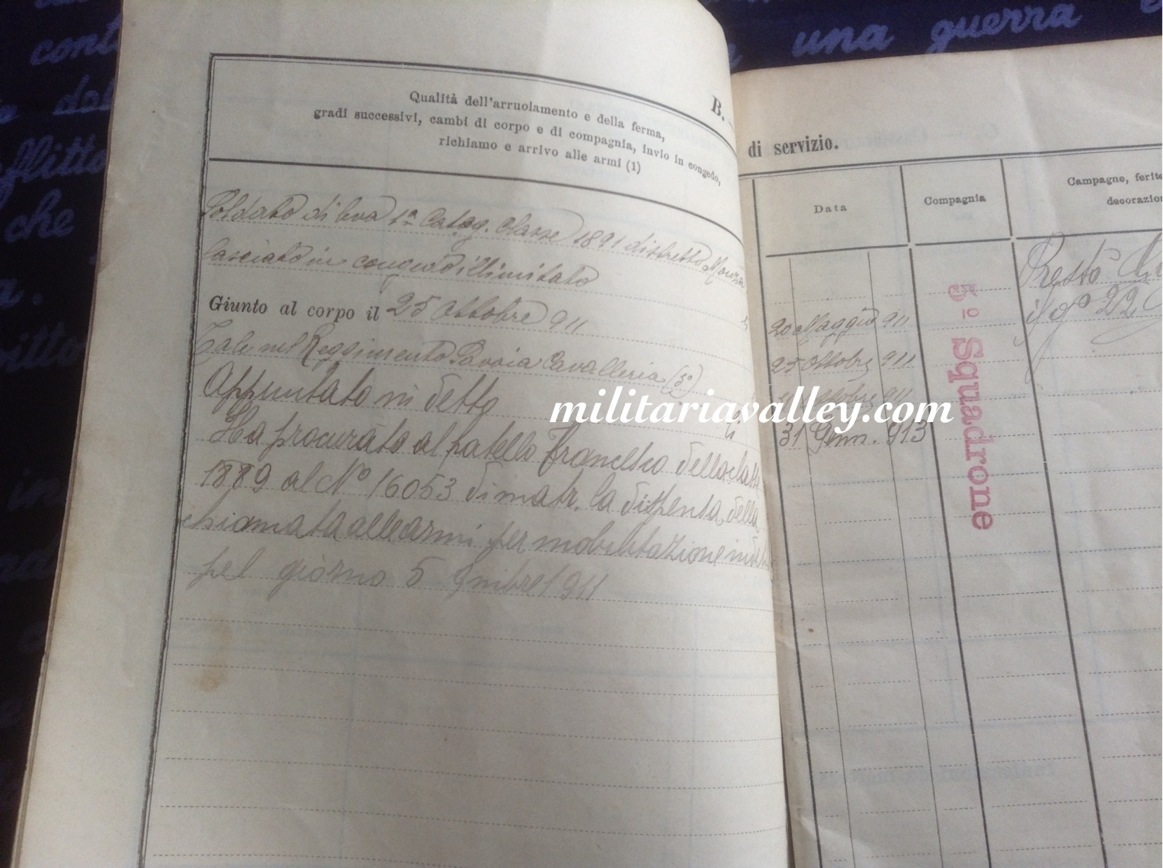 una guerra
che
Qualità dell'arruolamento e della ferma,
gradi successivi, cambi di corpo e di compagnia, invio in congedo,
richiamo e arrivo alle armi (1)
Soldato di leva 1ª Categ. Classe 1891 distretto Monza
lasciato in congedo illimitato
Giunto al corpo il 25 Ottobre 911
Tale nel Reggimento Cavalleria
Appuntato in detto
Ha procurato al fratello Francesco della
1889 al Nº 16053 di matr. la dispensa della
chiamata alle armi per mobilitazione
pel giorno 5 9mbre 1911
B.
di servizio.
Data
Compagnia
Campagne, ferite
decorazio
20 Maggio 911
25 Ottobre 911
31 Genn. 913
5º Squadrone
il 22
militariavalley.com